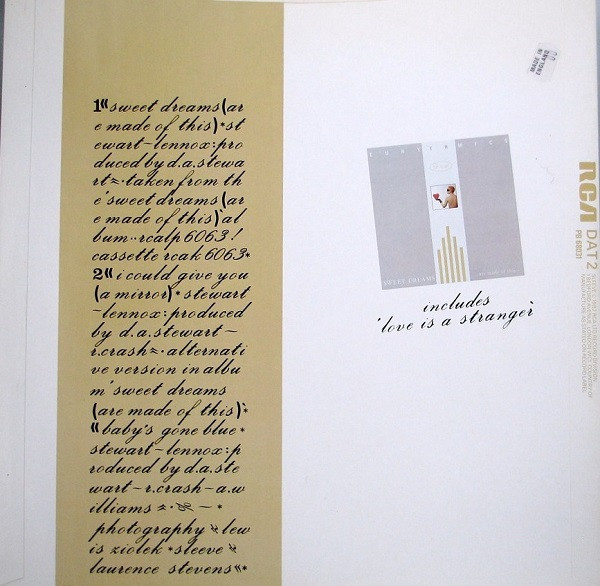 1 "sweet dreams(ar
e made of this)*st
ewart~lennox:pro
duced by d.a.stewa
rt~.taken from th
e'sweet dreams(ar
e made of this)'al
bum..rcalp 6063!
cassette rcak 6063*
2 "i could give you
(a mirror)*stewart
~lennox:produced
by d.a.stewart~
r.crash~.alternati
ve version in albu
m'sweet dreams
(are made of this)'*
"baby's gone blue*
stewart~lennox:p
roduced by d.a.ste
wart~r.crash~a.w
illiams ~*
photography lew
is ziolek*sleeve
laurence stevens"*
MADE IN
ENGLAND
EURYTHMICS
SWEET DREAMS
includes
'love is a stranger'
RCA DAT 2
PB 68031